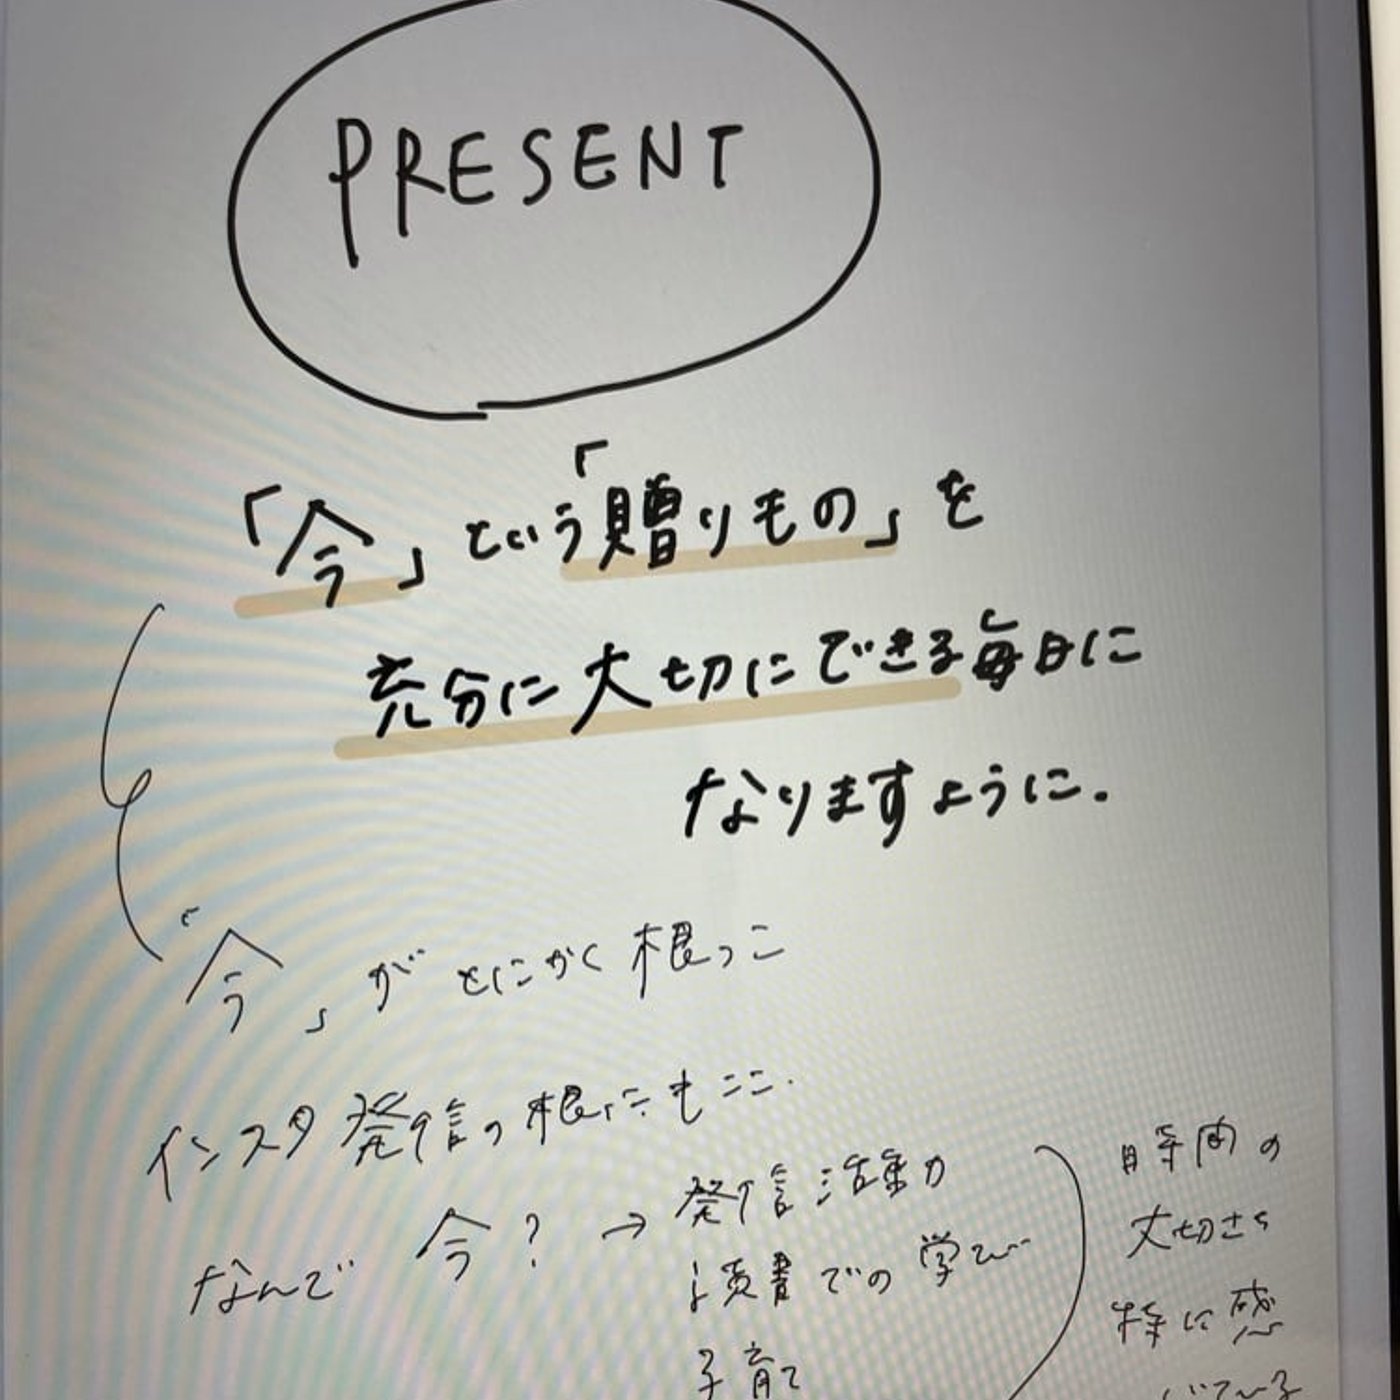 PRESENT
「今」という「贈りもの」を
充分に大切にできる毎日に
なりますように.
「今」がとにかく根っこ
インスタ発信の根にもここ.
なんで今?→発信活動
読書での学び
子育て
時間の
大切さを
特に感
じている